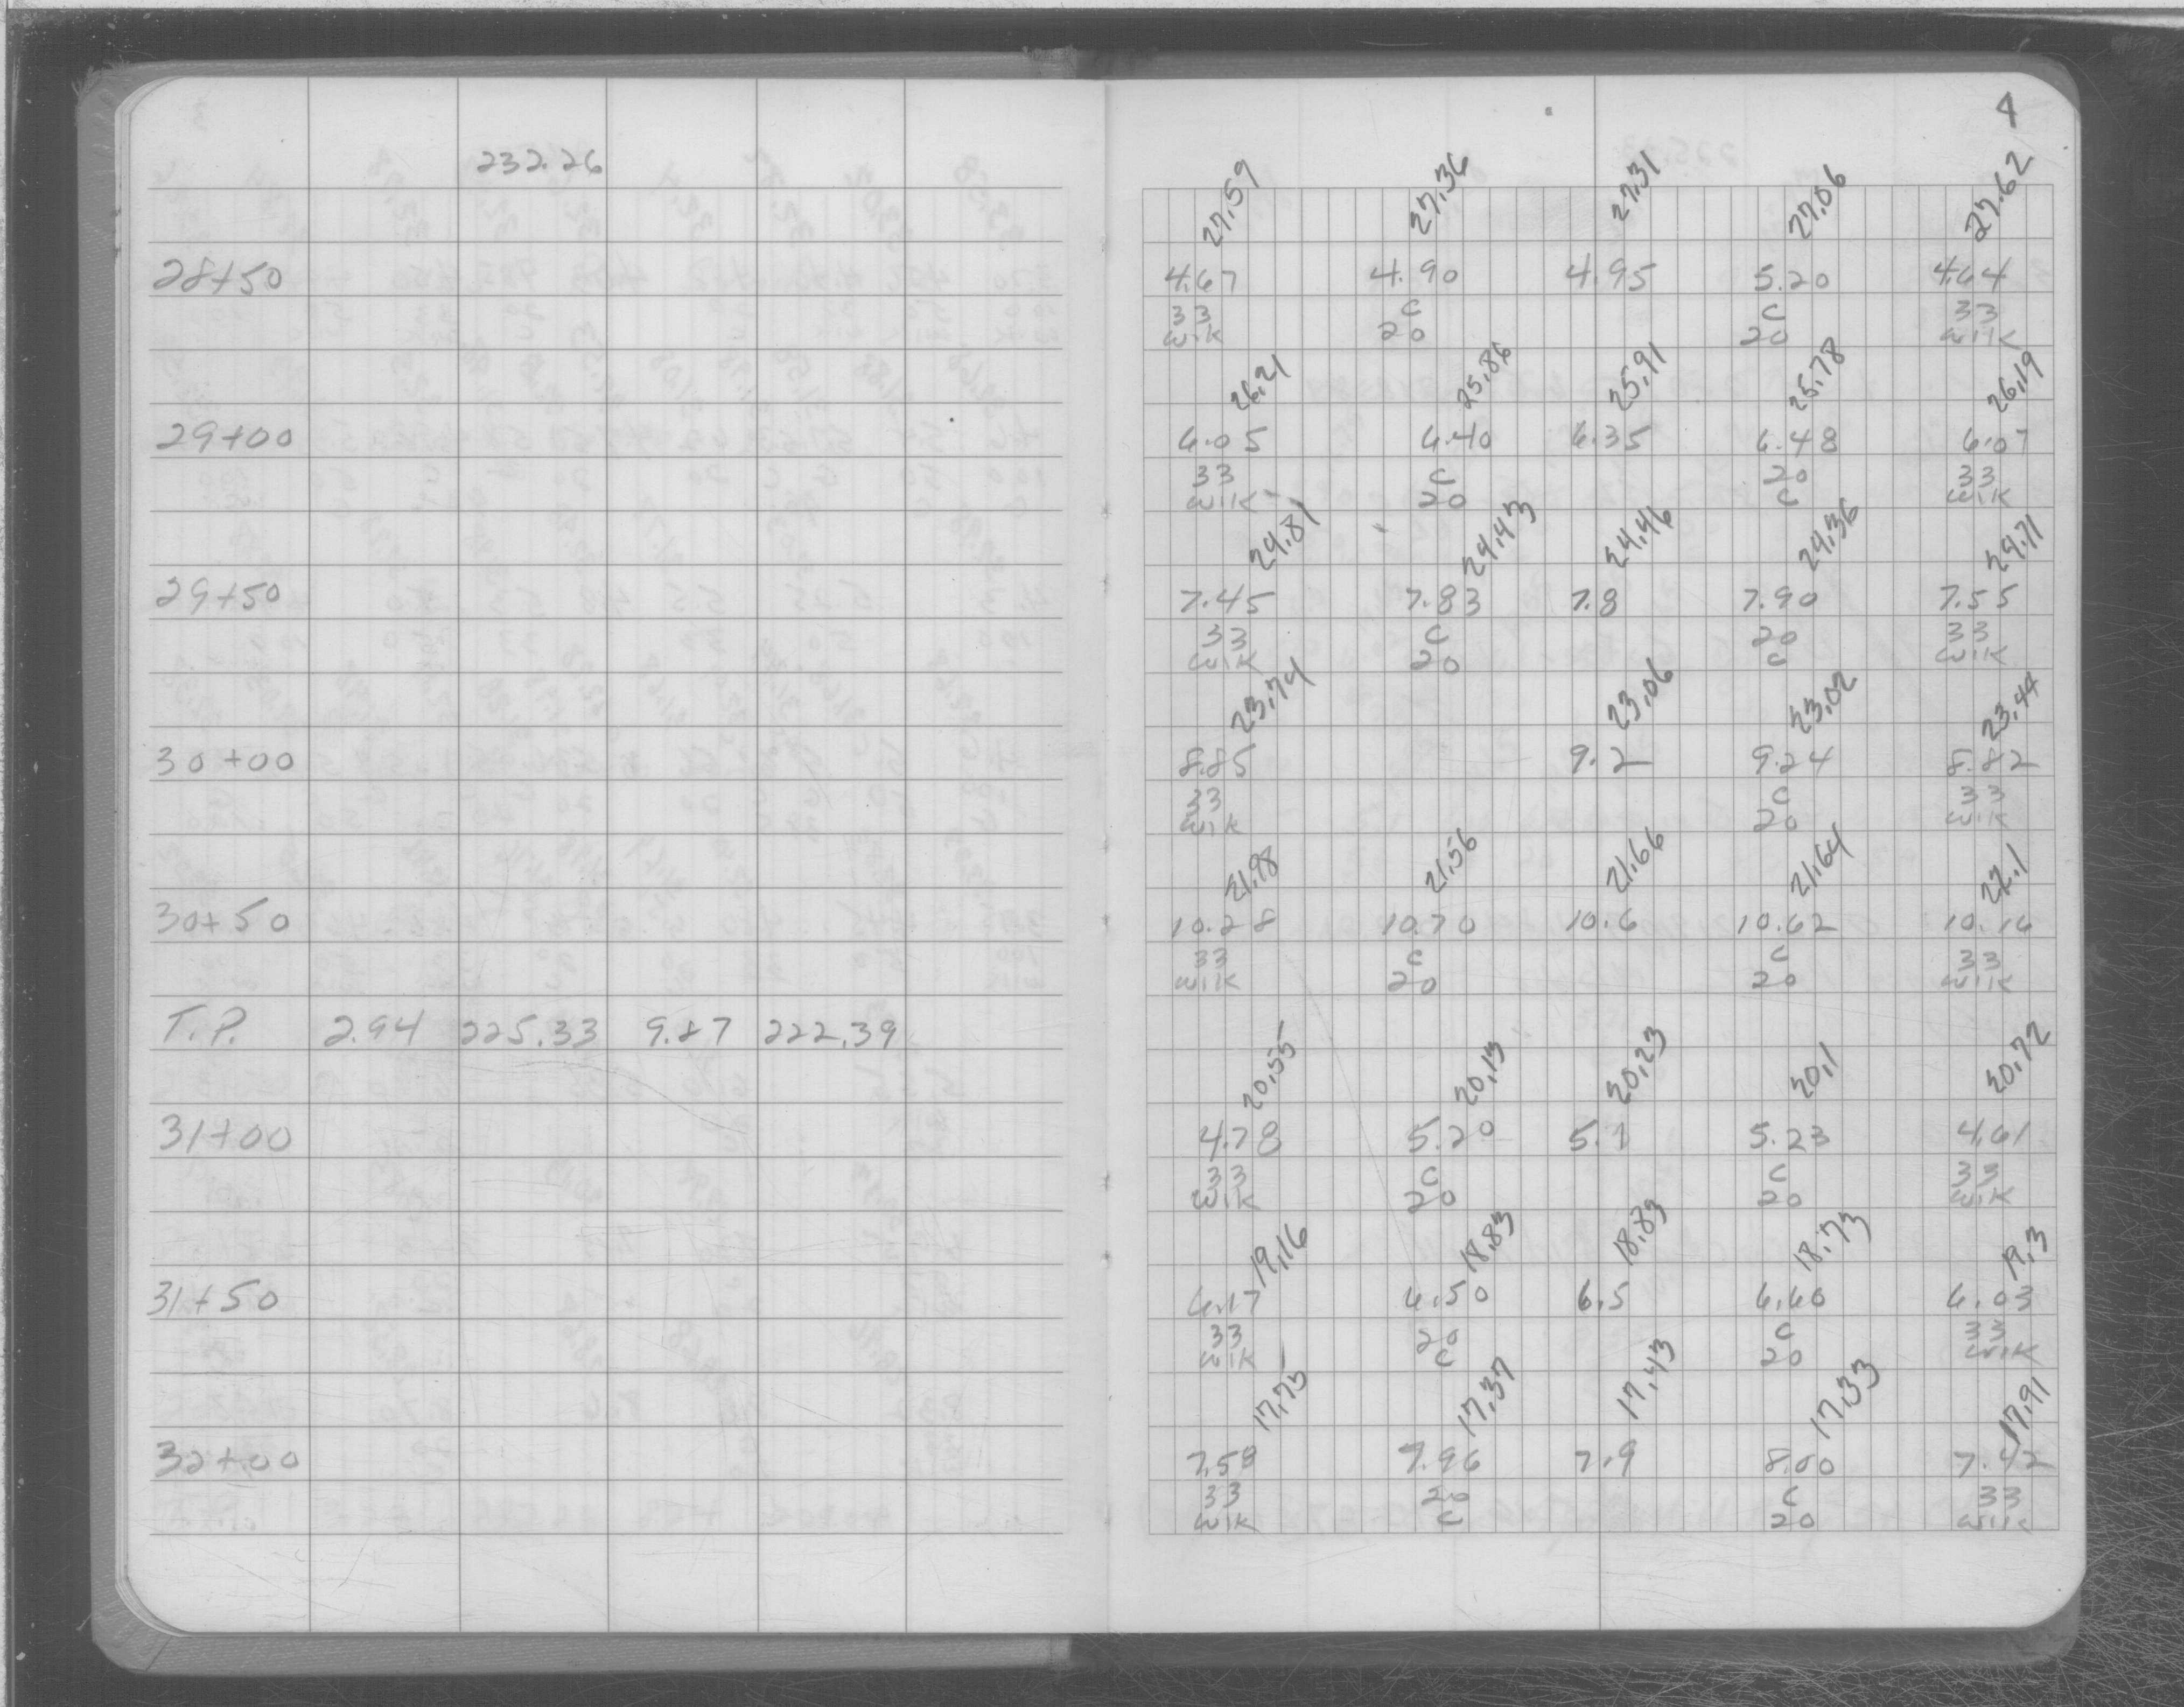 4
232.26
27.59 27.36 27.31 27.06 27.62
28+50 4.67 4.90 4.95 5.20 4.64
33 C C 33
Wlk 20 20 Wlk
26.21 25.86 25.91 25.78 26.19
29+00 6.05 6.40 6.35 6.48 6.07
33 C 20 33
Wlk 20 C Wlk
24.81 24.43 24.46 24.36 24.71
29+50 7.45 7.83 7.8 7.90 7.55
33 C 20 33
Wlk 20 C Wlk
23.74 23.06 23.02 23.44
30+00 8.85 9.2 9.24 8.82
33 C 33
Wlk 20 Wlk
21.98 21.56 21.66 21.64 22.1
30+50 10.28 10.70 10.6 10.62 10.16
33 C C 33
Wlk 20 20 Wlk
T.P. 2.94 225.33 9.87 222.39
20.55 20.13 20.23 20.1 20.72
31+00 4.78 5.20 5.1 5.23 4.61
33 C C 33
Wlk 20 20 Wlk
19.16 18.83 18.83 18.73 19.3
31+50 6.17 6.50 6.5 6.60 6.03
33 20 C 33
Wlk C 20 Wlk
17.75 17.37 17.43 17.33 17.91
32+00 7.58 7.96 7.9 8.00 7.42
33 20 C 33
Wlk C 20 Wlk